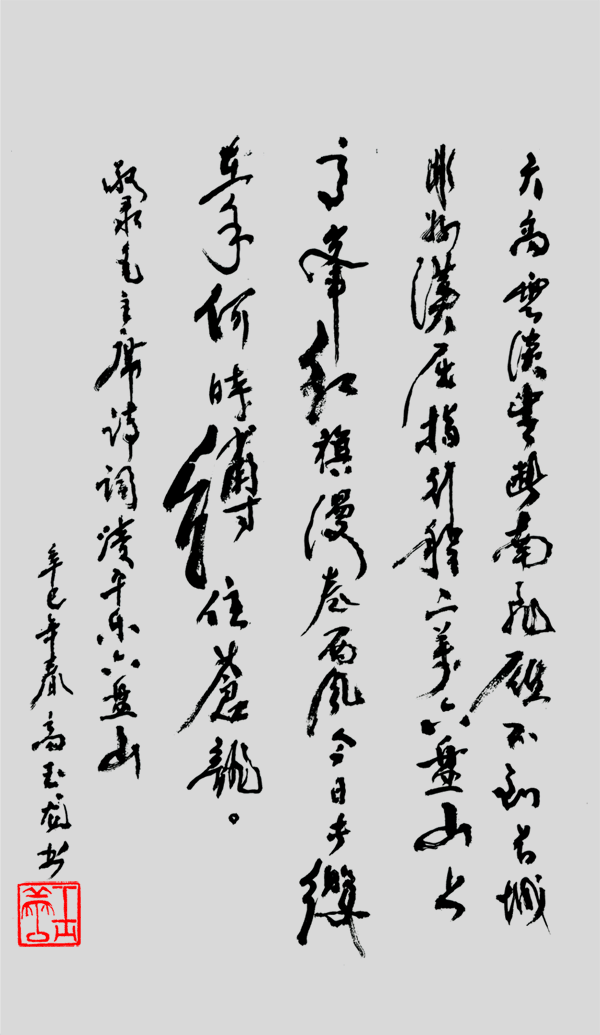 天高雲淡望斷南飛雁不到長城
非好漢屈指行程二萬六盤山上
高峰紅旗漫卷西風今日長纓
在手何時縛住蒼龍。
敬录毛主席诗词清平乐六盘山
辛巳年春高玉书